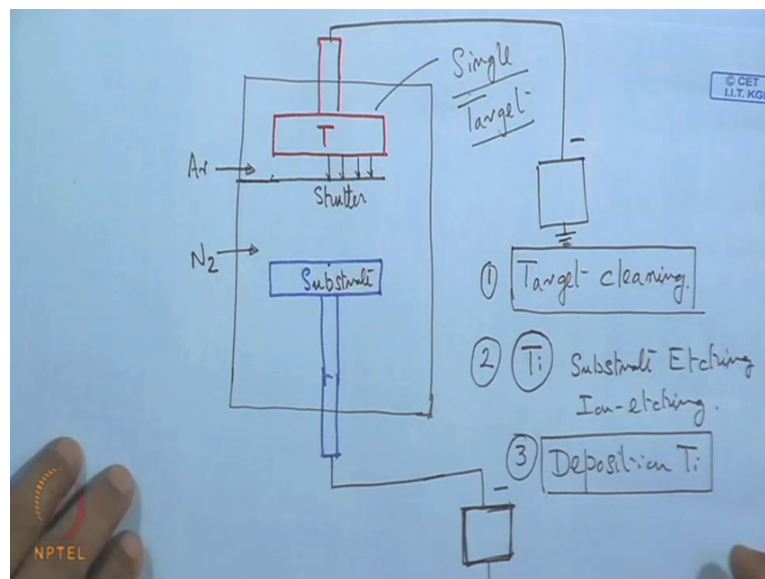 Single
Target
© CET
I.I.T. KGP
T
Ar
Shutter
N2
Substrate
-
① Target cleaning.
② Ti Substrate Etching
Ion-etching.
③ Deposition Ti
-
NPTEL